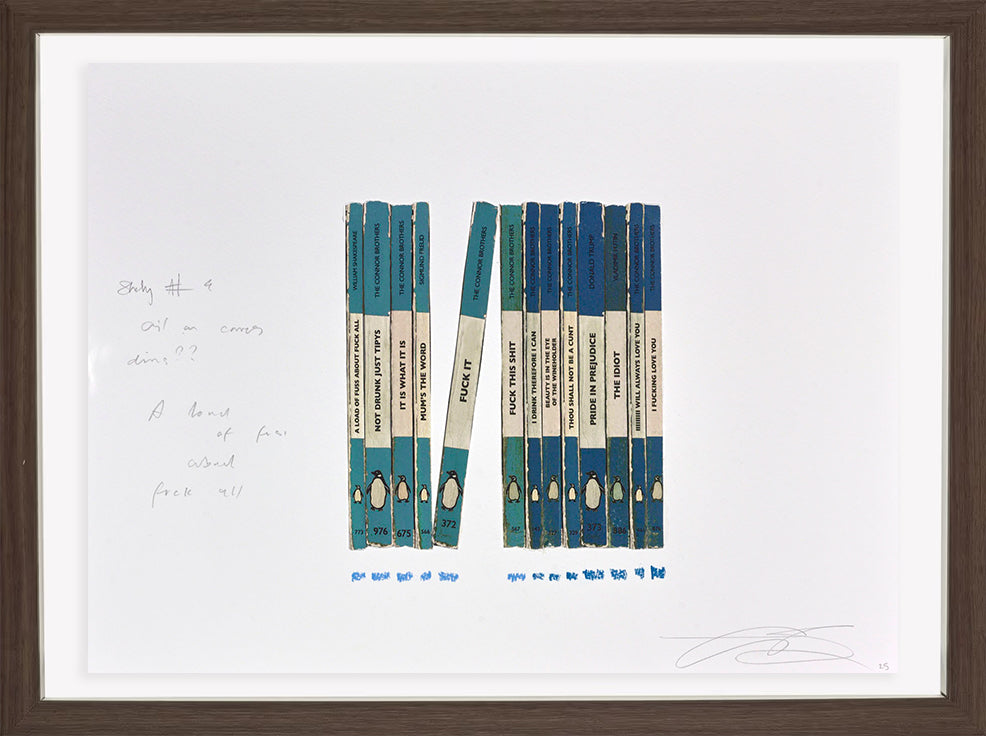 Study # 4
Oil on canvas
dims??
A load
of fuss
about
fuck all
WILLIAM SHAKESPEARE
A LOAD OF FUSS ABOUT FUCK ALL
773
THE CONNOR BROTHERS
NOT DRUNK JUST TIPYS
976
THE CONNOR BROTHERS
IT IS WHAT IT IS
675
SIGMUND FREUD
MUM'S THE WORD
THE CONNOR BROTHERS
FUCK IT
372
THE CONNOR BROTHERS
FUCK THIS SHIT
567
THE CONNOR BROTHERS
I DRINK THEREFORE I CAN
THE CONNOR BROTHERS
BEAUTY IS IN THE EYE
OF THE WINEHOLDER
THE CONNOR BROTHERS
THOU SHALL NOT BE A CUNT
DONALD TRUMP
PRIDE IN PREJUDICE
373
VLADIMIR PUTIN
THE IDIOT
THE CONNOR BROTHERS
IIIIIIIIII WILL ALWAYS LOVE YOU
THE CONNOR BROTHERS
I FUCKING LOVE YOU
25